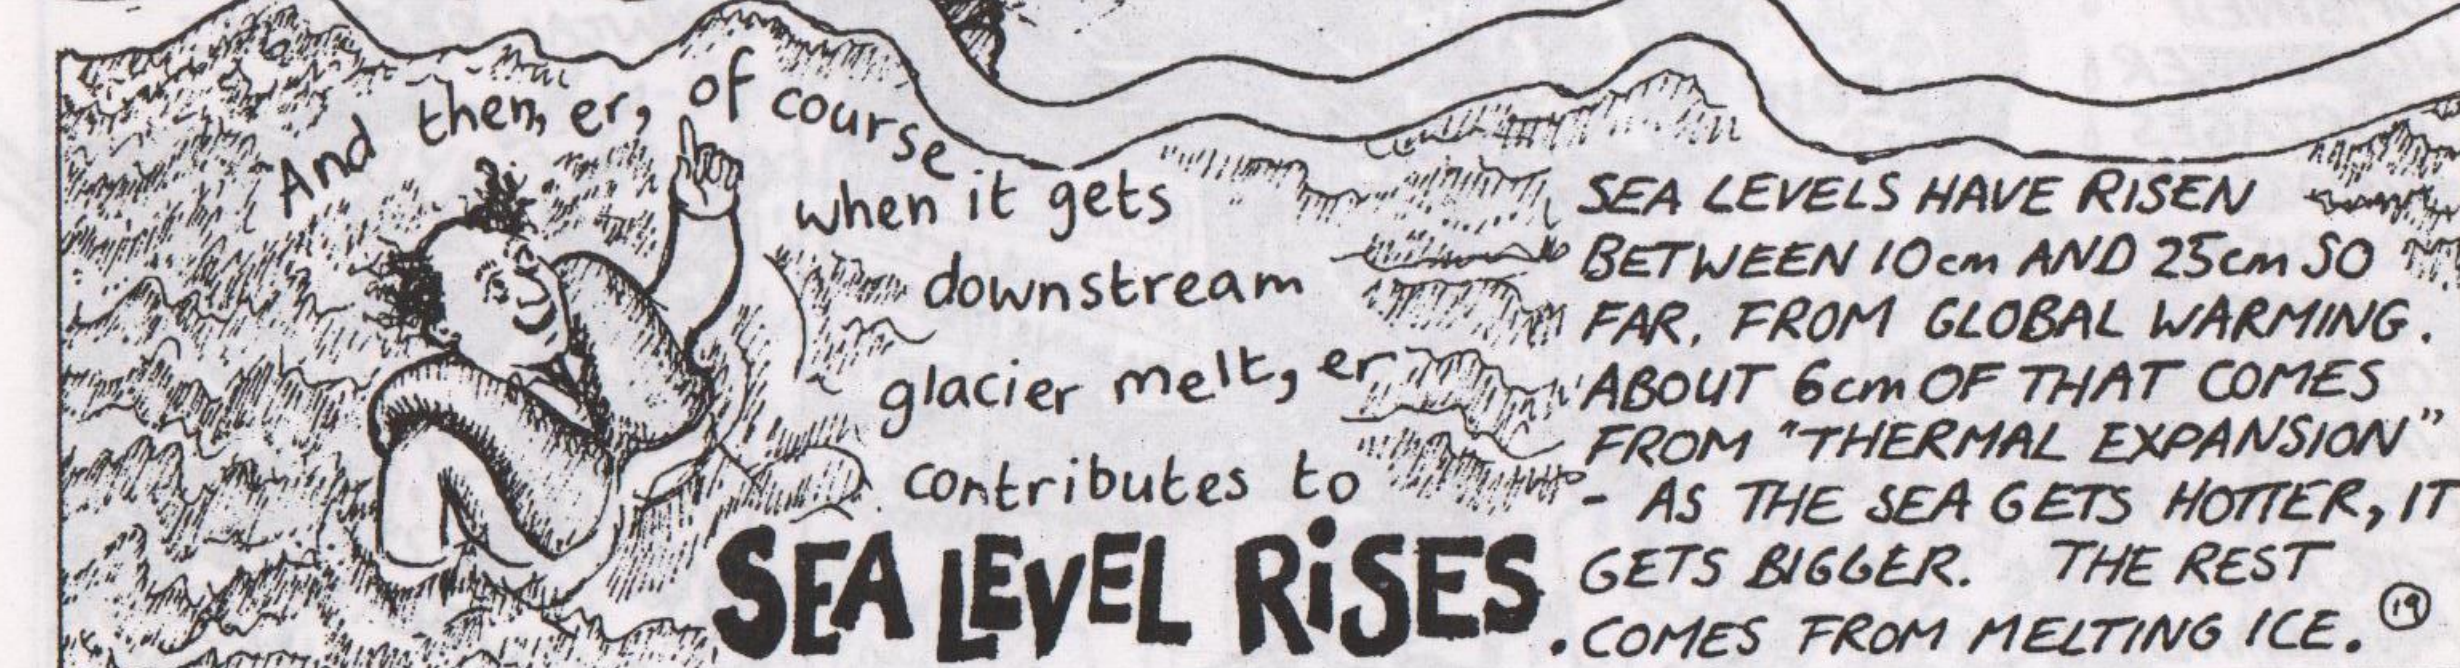 And then, er, of course
when it gets
downstream
glacier melt, er
contributes to
SEA LEVEL RiSES.
SEA LEVELS HAVE RISEN
BETWEEN 10cm AND 25cm SO
FAR, FROM GLOBAL WARMING.
ABOUT 6cm OF THAT COMES
FROM "THERMAL EXPANSION"
- AS THE SEA GETS HOTTER, IT
GETS BIGGER. THE REST
COMES FROM MELTING ICE. 19